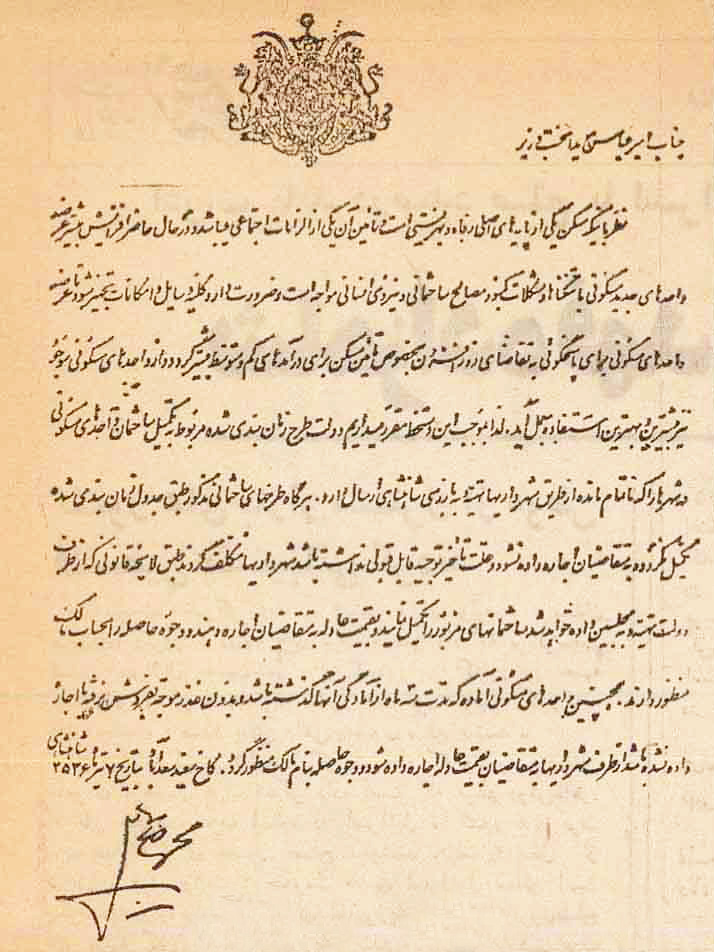 جناب امیرعباس هویدا نخست وزیر
نظر باینکه مسکن یکی از پایه‌های اصلی رفاه و بهزیستی است و تأمین آن یکی از الزامات اجتماعی میباشد و در حال حاضر افزایش بیشتر عرضه
واحدهای جدید مسکونی با تنگناها و مشکلات کمبود مصالح ساختمانی و نیروی انسانی مواجه است و ضرورت دارد کلیه وسایل و امکانات تجهیز شود تا عرضه
واحدهای مسکونی برای پاسخگوئی به تقاضای روزافزون بخصوص تأمین مسکن برای درآمدهای کم و متوسط بیشتر گردد و از واحدهای مسکونی موجود
نیز بیشترین و بهترین استفاده بعمل آید. لذا بموجب این دستخط مقرر میداریم دولت طرح زمان بندی شده مربوط به تکمیل ساختمان واحدهای مسکونی
در شهرها را که ناتمام مانده از طریق شهرداریها تهیه و به بازرسی شاهنشاهی ارسال دارد. هرگاه طرحهای ساختمانی مذکور طبق جدول زمان بندی شده
تکمیل نگردد و به متقاضیان اجاره داده نشود و علت تأخیر توجیه قابل قبولی نداشته باشد شهرداریها مکلف گردند طبق لایحه قانونی که از طرف
دولت تهیه و به مجلسین داده خواهد شد ساختمانهای مزبور را تکمیل نمایند و بقیمت عادله به متقاضیان اجاره دهند و وجوه حاصله را بحساب مالک
منظور دارند. همچنین واحدهای مسکونی آماده که مدت سه ماه از آمادگی آنها گذشته باشد و بدون عذر موجه بفروش نرفته یا اجاره
داده نشده باشد از طرف شهرداریها به متقاضیان بقیمت عادله اجاره داده شود و وجوه حاصله بنام مالک منظور گردد. کاخ سفید سعدآباد بتاریخ ۷ تیرماه ۲۵۳۶ شاهنشاهی